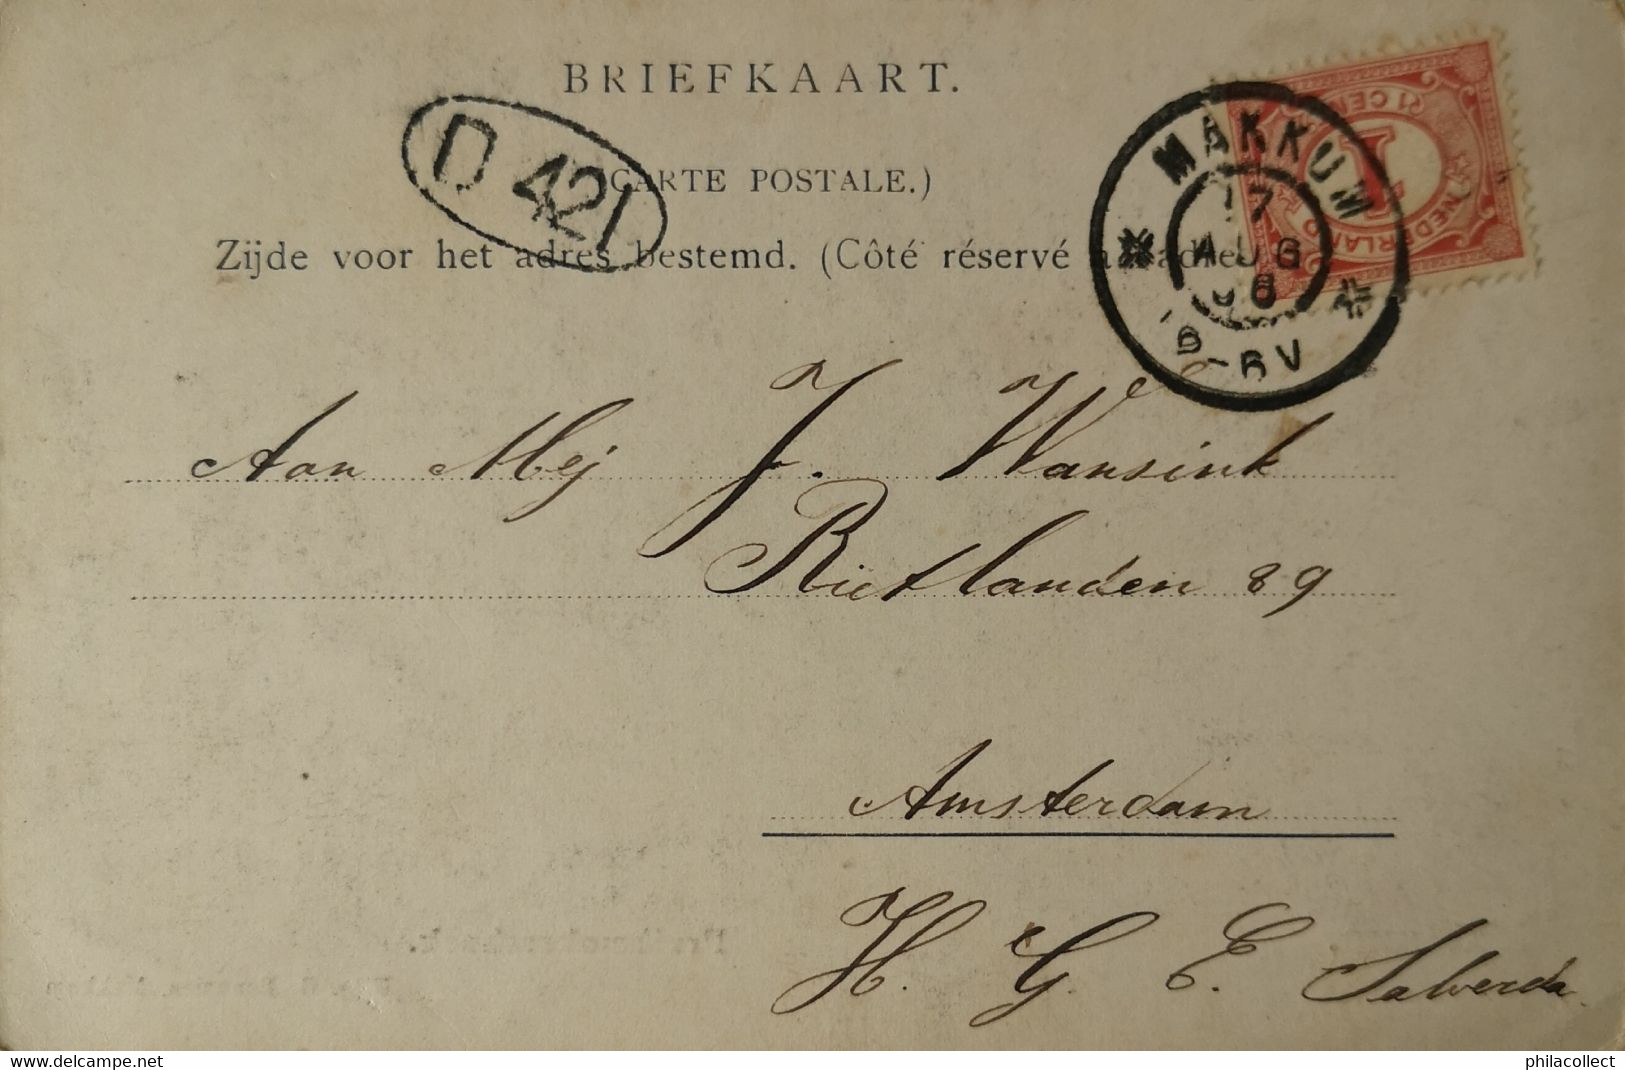 BRIEFKAART.
(CARTE POSTALE.)
Zijde voor het adres bestemd. (Côté réservé
D 421
MAKKUM
17
AUG
06
6-8V
NEDERLAND
1
1 CENT
Aan Mej J. Wansink
Rietlanden 89
Amsterdam
H. G. E. Salverda
delcampe.net
philacollect